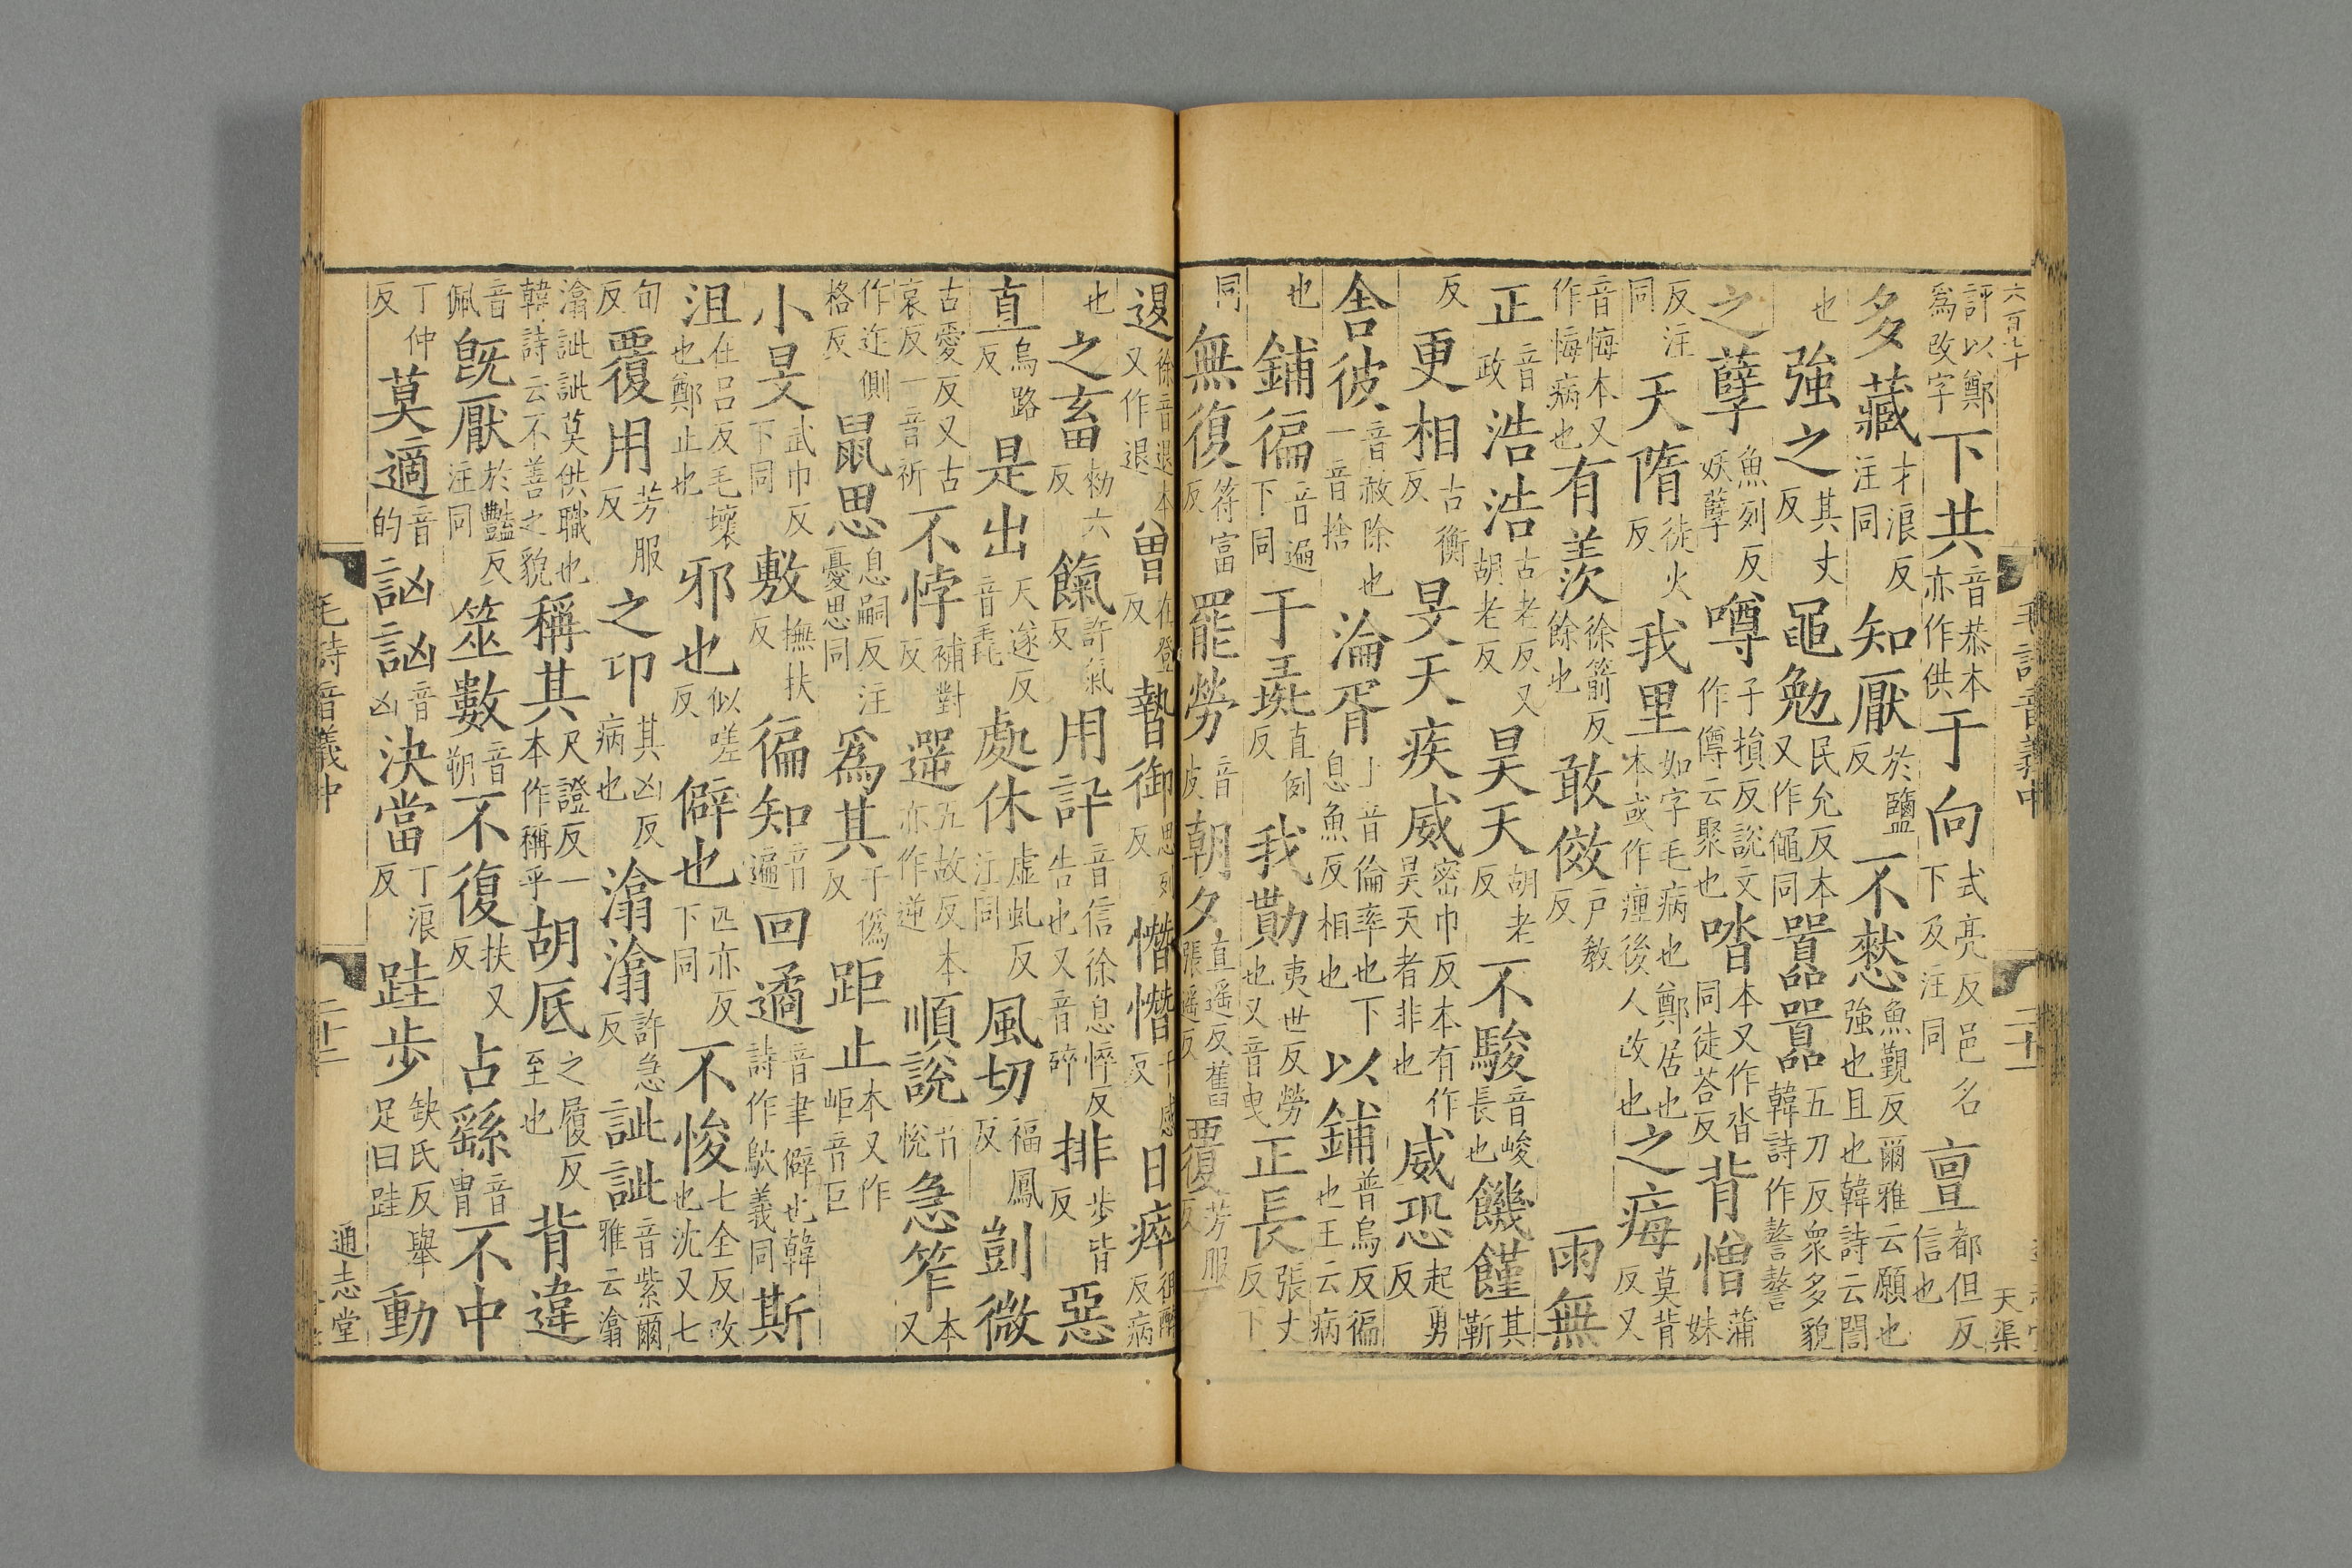 六百七十
評以鄭爲改字下共音恭本亦作供于向式亮反邑名下及注同亶都但反信也
多藏才浪反注同知厭於鹽反不憖魚覲反爾雅云願也強也且也韓詩云誾
也強之其丈反黽勉民允反本又作僶同嚻嚻五刀反衆多貌韓詩作謷謷
之孽魚列反妖孽噂子損反說文作僔云聚也喈本又作沓同徒荅反背憎蒲妹
反注同天隋徒火反我里如字毛病也鄭居也本或作㾖後人改也之痗莫背反又
音悔本又作悔病也有羨徐箭反餘也敢傚戶教反雨無
正音政浩浩古老反又胡老反昊天胡老反不駿音峻長也饑饉其靳
反更相古衡反旻天疾威密巾反本有作昊天者非也威恐起勇反
舍彼音赦除也一音捨淪胥上音倫率也下息魚反相也以鋪普烏反徧也王云病
也鋪徧音遍下同于彘直例反我勩夷世反勞也又音曳正長張丈反下
同無復符富反罷勞音皮朝夕直遥反舊張遥反覆芳服反
毛詩音義中
二十一
天渠
退徐音退本又作退曾在登反暬御思列反憯憯千感反日瘁徂醉反病
也之畜勑六反餼許氣反用訊音信徐息悴反告也又音碎排步皆反惡
直烏路反是出尺遂反音毳處休虛虬反注同風切福鳳反剴微
古愛反又古哀反一音祈不悖補對反遻五故反本亦作逆順說音悅急笮本又
作迮側格反鼠思息嗣反注憂思同爲其于僞反距止本又作岠音巨
小旻武巾反下同敷撫扶反徧知音遍回遹音聿僻也韓詩作鴥義同斯
沮在呂反毛壞也鄭止也邪也似嗟反僻也匹亦反下同不悛七全反改也沈又七
旬反覆用芳服反之卭其凶反病也潝潝許急反訿訿音紫爾雅云潝
潝訿訿莫供職也韓詩云不善之貌稱其尺證反一本作稱乎胡厎之履反至也背違
音佩旣厭於豔反注同筮數音朔不復扶又反占繇音胄不中
丁仲反莫適音的訩訩音凶決當丁浪反跬步缺氏反舉足曰跬動
毛詩音義中
二十二
通志堂